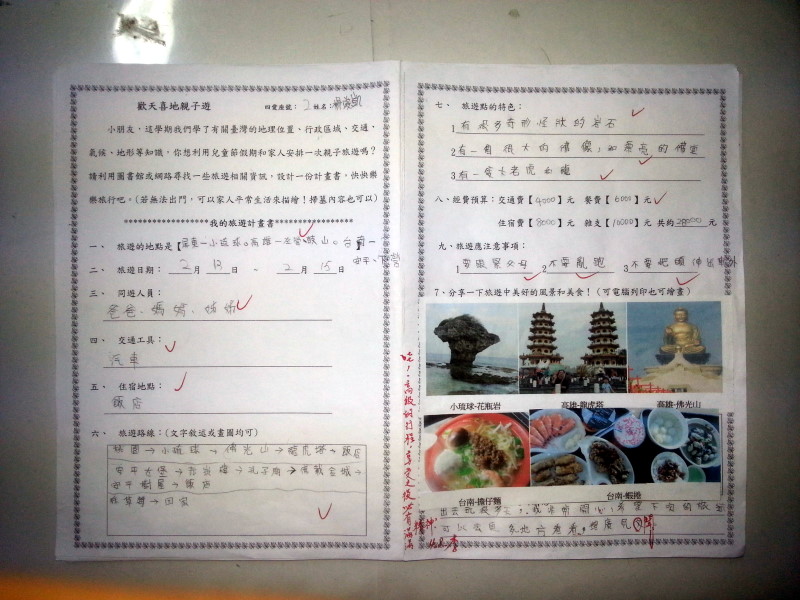 歡天喜地親子遊 四愛座號：2 姓名：
小朋友，這學期我們學了有關臺灣的地理位置、行政區域、交通、
氣候、地形等知識，你想利用兒童節假期和家人安排一次親子旅遊嗎？
請利用圖書館或網路尋找一些旅遊相關資訊，設計一份計畫書，快快樂
樂旅行吧。(若無法出門，可以家人平常生活來描繪！掃墓內容也可以)
*******************我的旅遊計畫書*****************
一、 旅遊的地點是【屏東－小琉球。高雄－左營、鼓山。台南－
安平、
二、 旅遊日期： 2 月 13 日 ～ 2 月 15 日
三、 同遊人員：
爸爸、媽媽、姊姊
四、 交通工具：
汽車
五、 住宿地點：
飯店
六、 旅遊路線：(文字敘述或畫圖均可)
桃園→小琉球→佛光山→龍虎塔→飯店
安平古堡→赤崁樓→孔子廟→億載金城→
安平樹屋→飯店
→回家
七、 旅遊點的特色：
1 有很多奇形怪狀的岩石
2 有一有很大的佛像，和
3 有一隻大老虎和龍
八、經費預算：交通費【4000】元 餐費【6000】元
住宿費【8000】元 雜支【10000】元 共約28000元
九、旅遊應注意事項：
1 要跟緊父母 2 不要亂跑 3 不要把頭伸出窗外
7、分享一下旅遊中美好的風景和美食！(可電腦列印也可繪畫)
小琉球-花瓶岩 高雄-龍虎塔 高雄-佛光山
台南-擔仔麵 台南-蝦捲
哇！高級的行程，享受之後必有滿滿